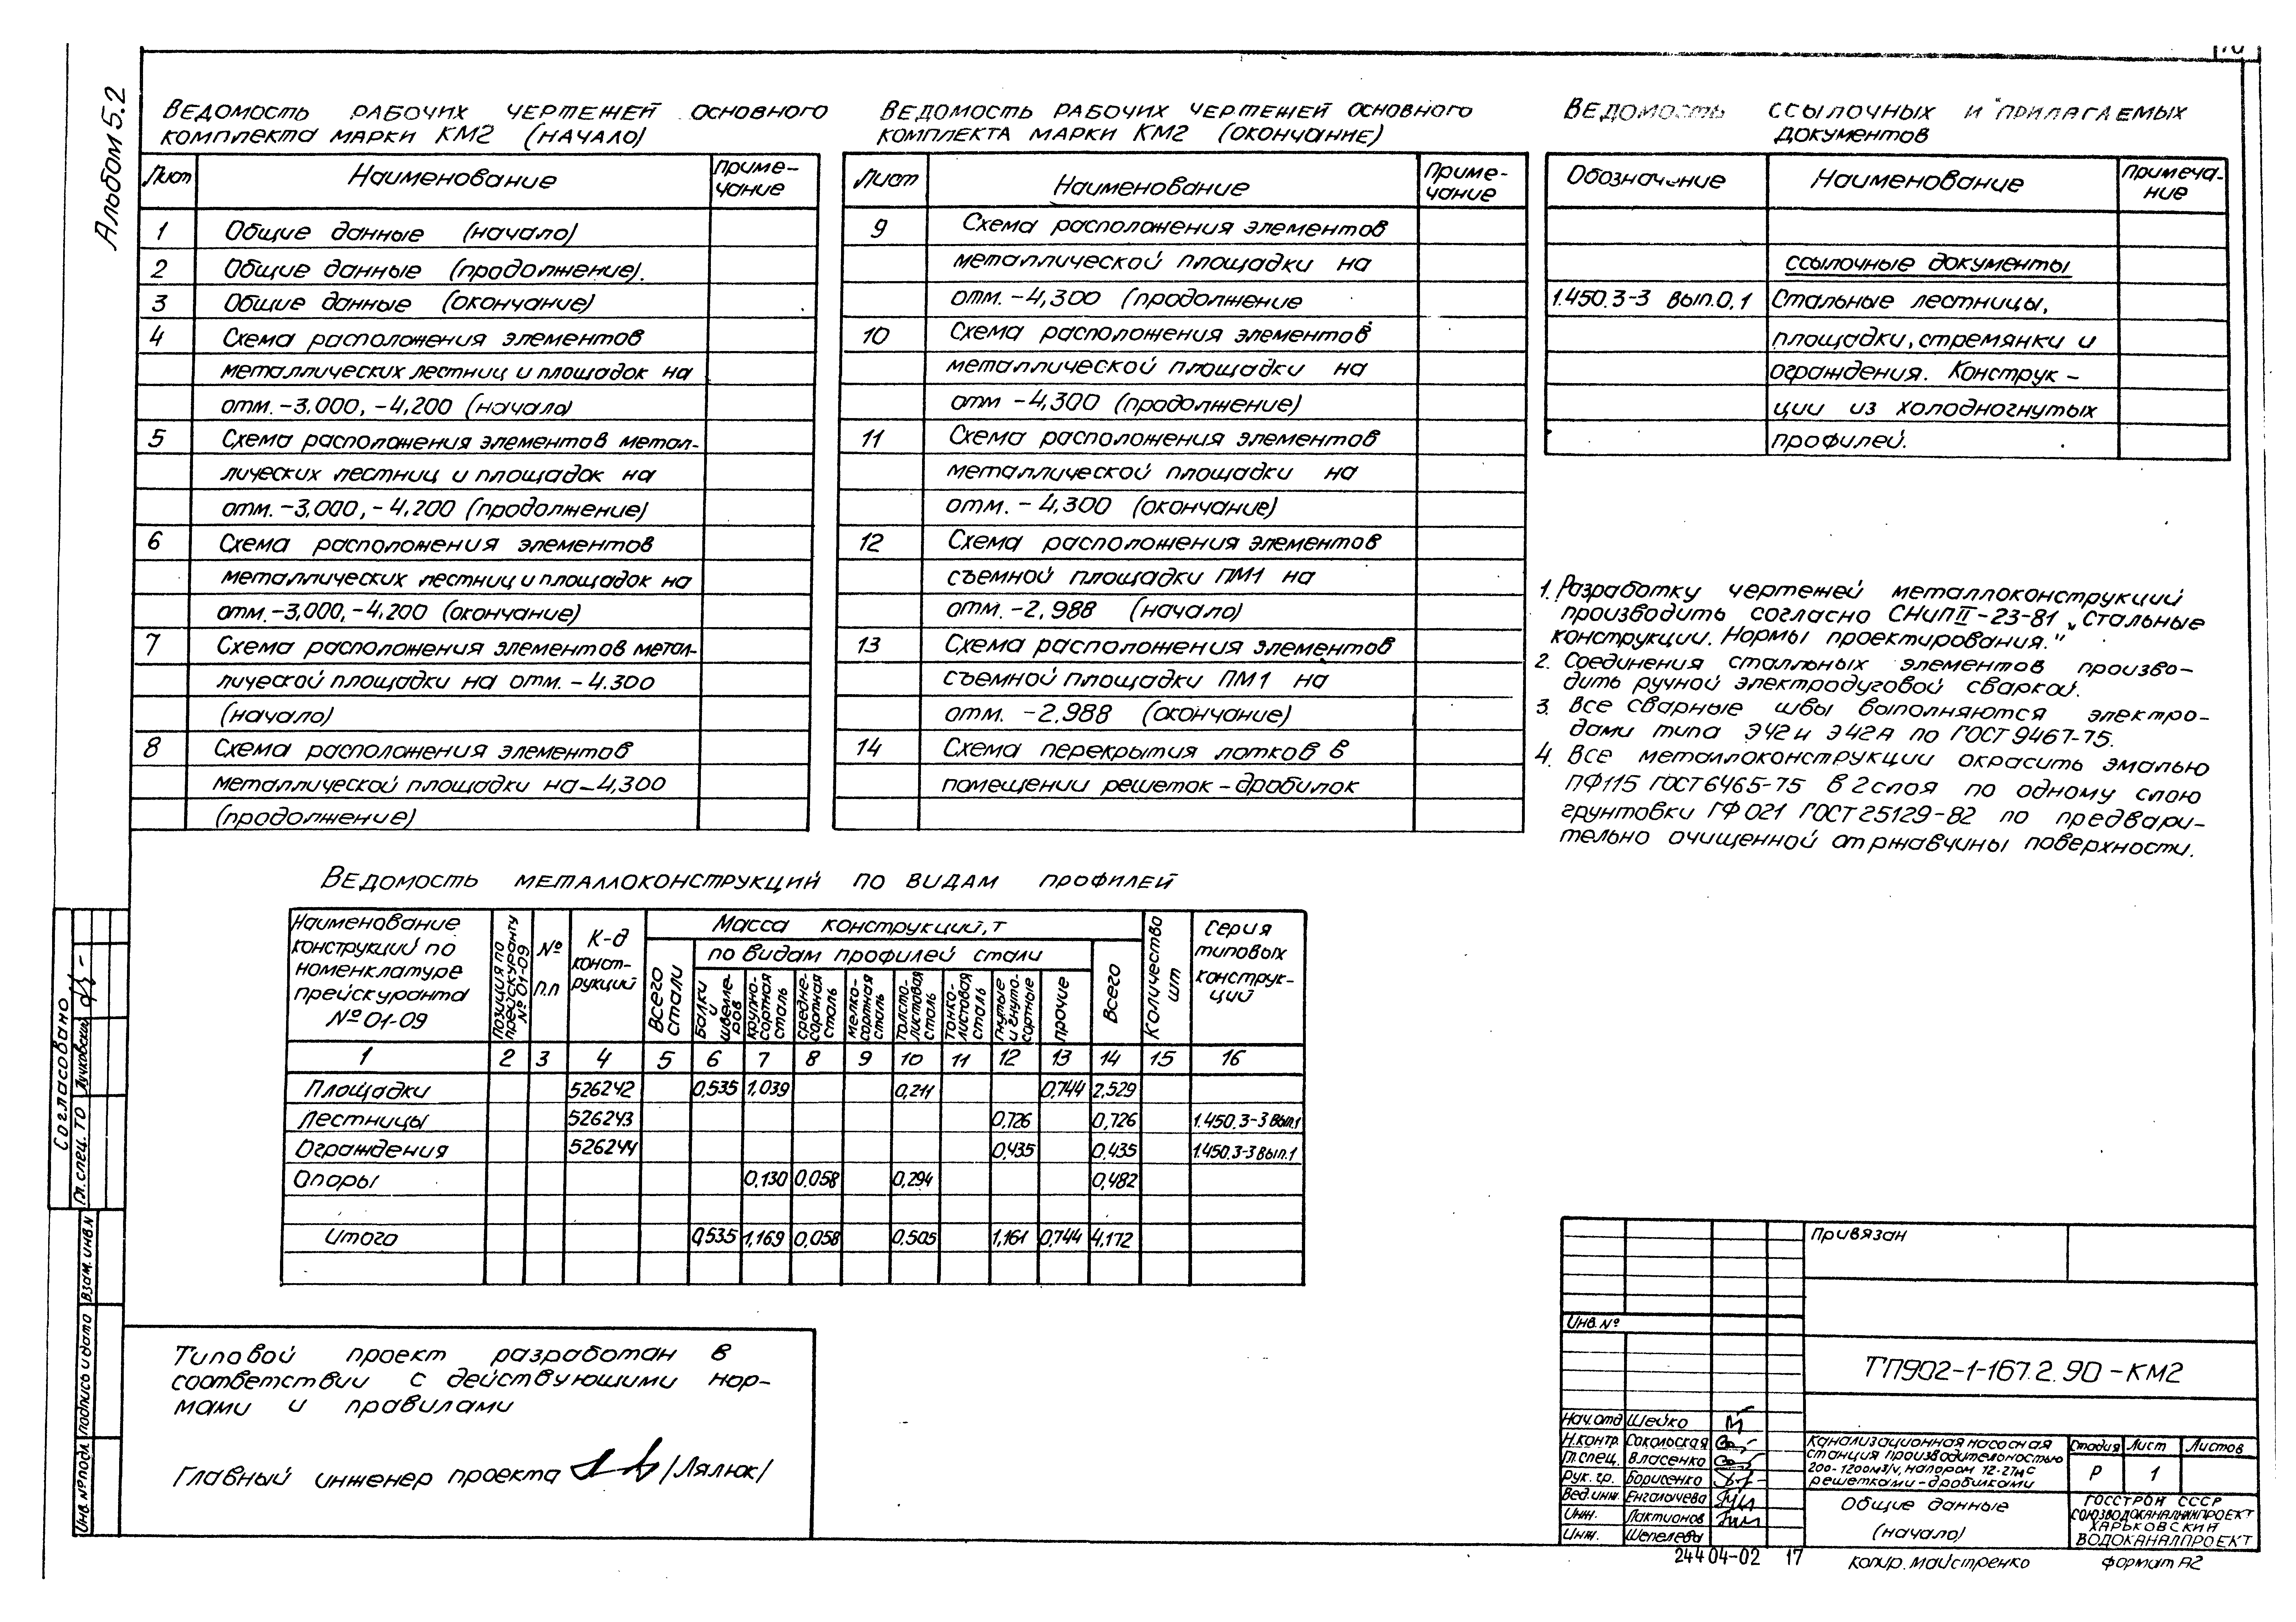 Альбом 5.2
Ведомость рабочих чертежей основного
комплекта марки КМ2 (начало)
Лист Наименование Приме-
чание
1 Общие данные (начало)
2 Общие данные (продолжение).
3 Общие данные (окончание)
4 Схема расположения элементов
металлических лестниц и площадок на
отм. -3,000, -4,200 (начало)
5 Схема расположения элементов метал-
лических лестниц и площадок на
отм. -3,000, -4,200 (продолжение)
6 Схема расположения элементов
металлических лестниц и площадок на
отм. -3,000, -4,200 (окончание)
7 Схема расположения элементов метал-
лической площадки на отм. -4.300
(начало)
8 Схема расположения элементов
металлической площадки на -4,300
(продолжение)
Ведомость рабочих чертежей основного
комплекта марки КМ2 (окончание)
Лист Наименование Приме-
чание
9 Схема расположения элементов
металлической площадки на
отм. -4,300 (продолжение
10 Схема расположения элементов
металлической площадки на
отм -4,300 (продолжение)
11 Схема расположения элементов
металлической площадки на
отм. -4,300 (окончание)
12 Схема расположения элементов
съемной площадки ПМ1 на
отм. -2,988 (начало)
13 Схема расположения элементов
съемной площадки ПМ1 на
отм. -2.988 (окончание)
14 Схема перекрытия лотков в
помещении решеток-дробилок
Ведомость ссылочных и прилагаемых
документов
Обозначение Наименование Примеча-
ние
ссылочные документы
1.450.3-3 вып.0,1 Стальные лестницы,
площадки, стремянки и
ограждения. Конструк-
ции из холодногнутых
профилей.
1. Разработку чертежей металлоконструкций
производить согласно СНиП II-23-81 „Стальные
конструкции. Нормы проектирования."
2. Соединения сталльных элементов произво-
дить ручной электродуговой сваркой.
3. Все сварные швы выполняются электро-
дами типа Э42 и Э42А по ГОСТ 9467-75.
4. Все металлоконструкции окрасить эмалью
ПФ115 ГОСТ 6465-75 в 2 слоя по одному слою
грунтовки ГФ 021 ГОСТ 25129-82 по предвари-
тельно очищенной от ржавчины поверхности.
Ведомость металлоконструкций по видам профилей
Наименование
конструкций по
номенклатуре
прейскуранта
№ 01-09
Позиция по
прейскуранту
№ 01-09
№
п.п
К-д
конст-
рукций
Масса конструкций, т
Всего
стали
по видам профилей стали
Балки
и
швелле-
ров
крупно-
сортная
сталь
средне-
сортная
сталь
мелко-
сортная
сталь
толсто-
листовая
сталь
тонко-
листовая
сталь
гнутые
и гнуто-
сортные
прочие
Всего
Количество
шт
Серия
типовых
конструк-
ций
1 2 3 4 5 6 7 8 9 10 11 12 13 14 15 16
Площадки 526242 0,535 1,039 0,211 0,744 2,529
Лестницы 526243 0,726 0,726 1.450.3-3 Вып.1
Ограждения 526244 0,435 0,435 1.450.3-3 Вып.1
Опоры 0,130 0,058 0,294 0,482
Итого 0,535 1,169 0,058 0,505 1,161 0,744 4,172
Типовой проект разработан в
соответствии с действующими нор-
мами и правилами
Главный инженер проекта /Лялюк/
Согласовано
Гл. спец. ТО Лучковский
Взам. инв. №
Подпись и дата
Инв. № подл.
Привязан
Инв. №
ТП902-1-167.2.90 -КМ2
Нач.отд Шейко
Н.контр. Сокольская
Гл.спец. Власенко
Рук. гр. Борисенко
Вед.инж. Енгалычева
Инж. Лактионов
Инж. Шепелева
Канализационная насосная
станция производительностью
200-1200м3/ч, напором 12-27м с
решетками-дробилками
Стадия Лист Листов
Р 1
Общие данные
(начало)
ГОССТРОЙ СССР
СОЮЗВОДОКАНАЛНИИПРОЕКТ
ХАРЬКОВСКИЙ
ВОДОКАНАЛПРОЕКТ
24404-02 17
копир. Майстренко формат А2